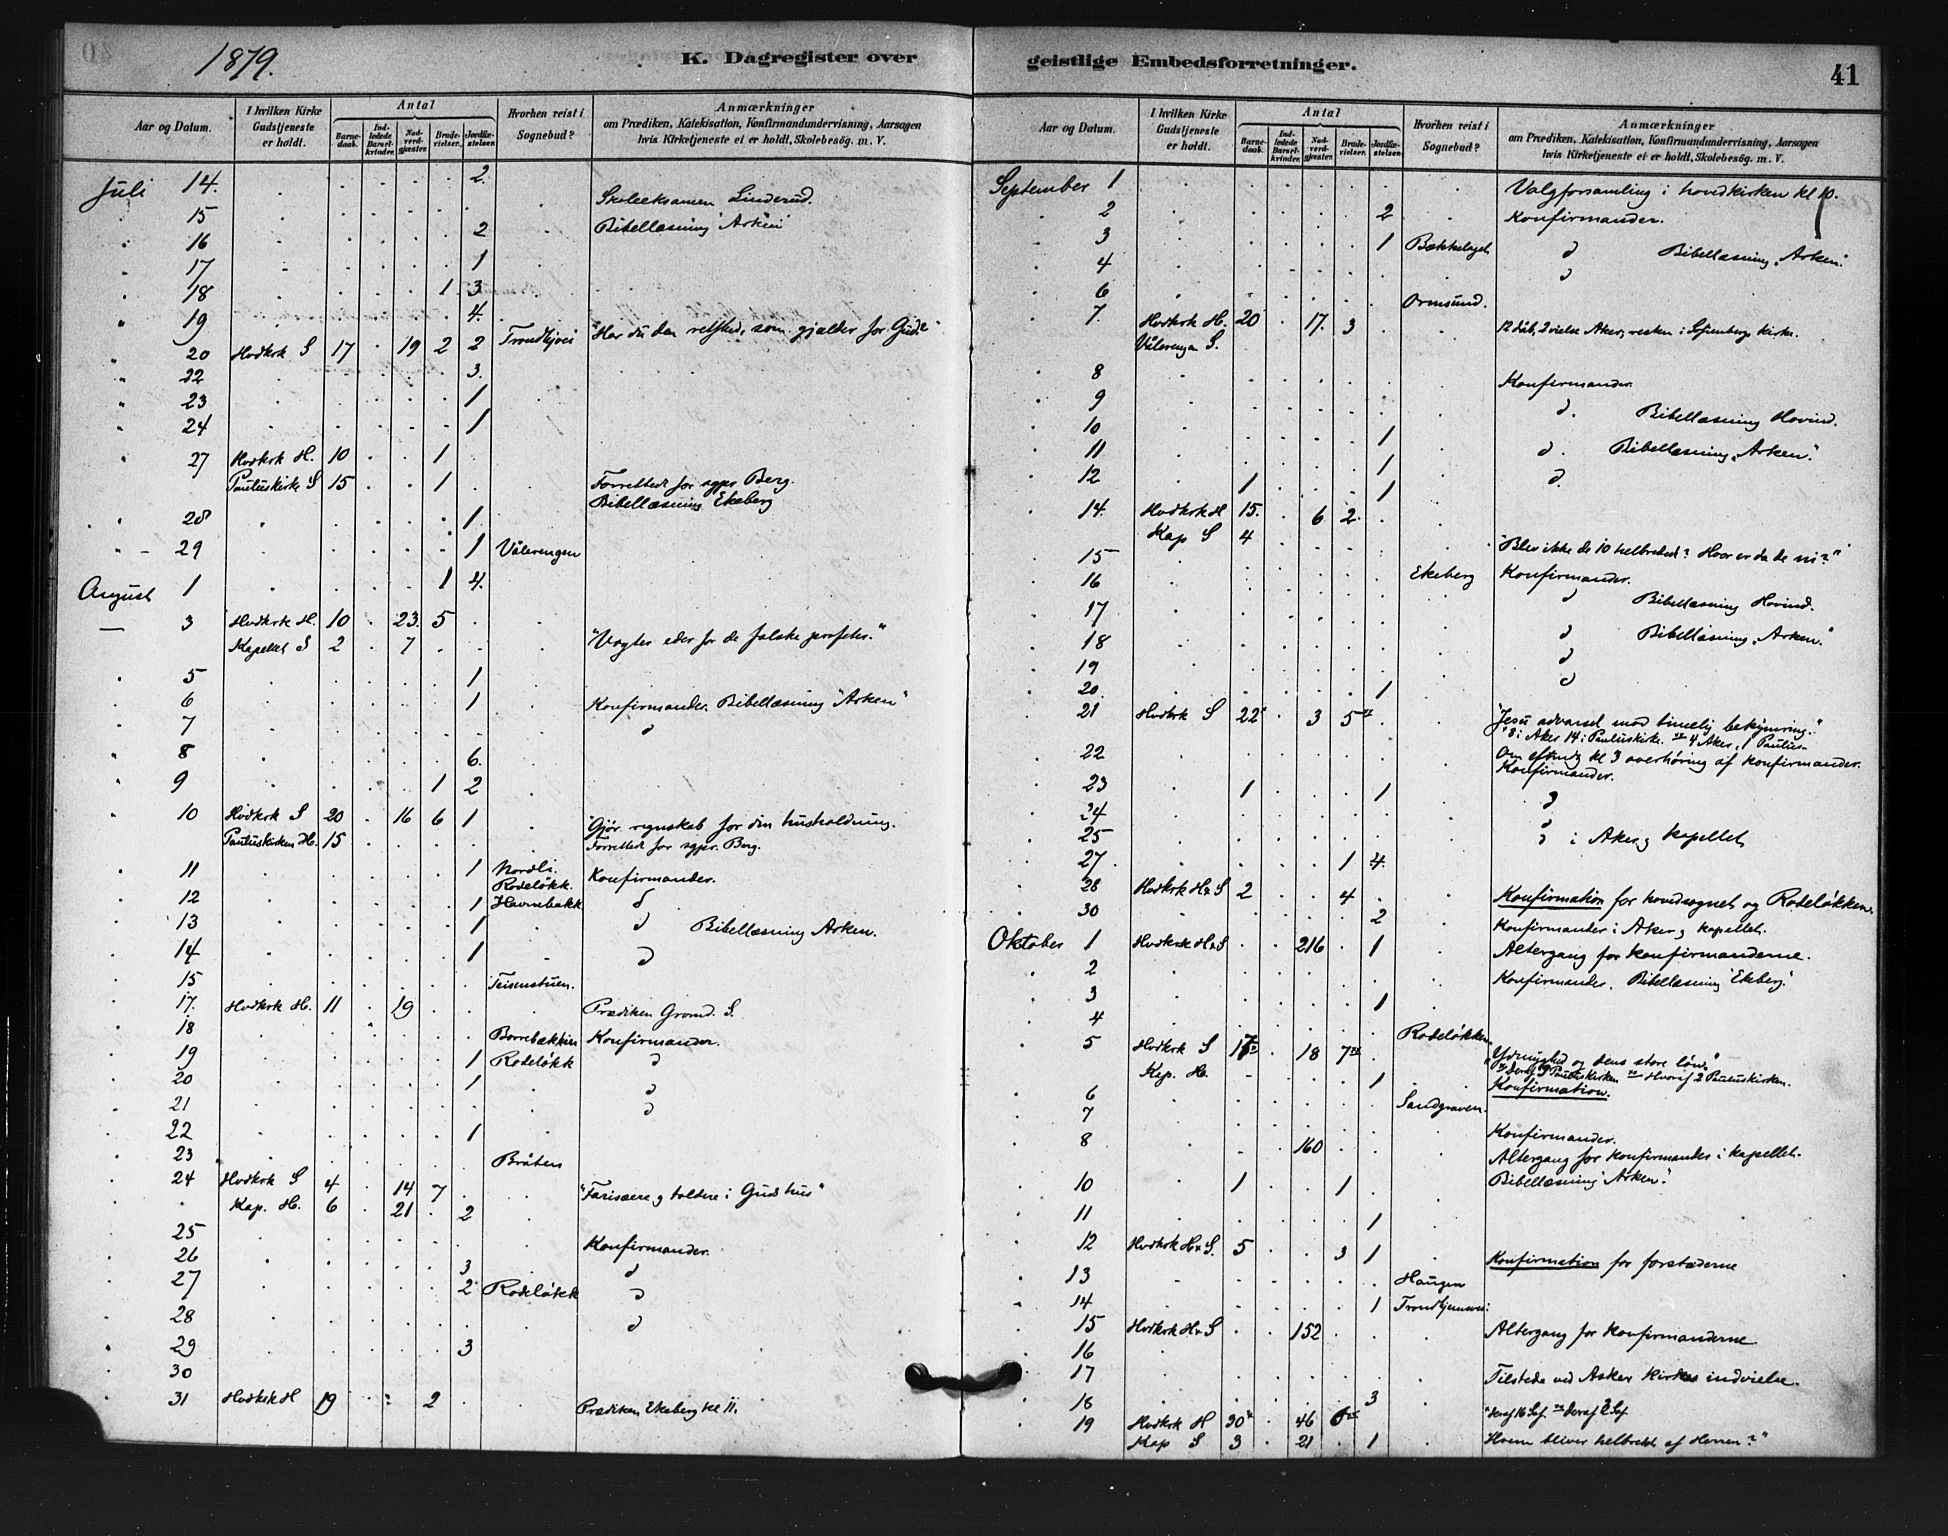 1879.
K. Dagregister over
Aar og Datum. I hvilken Kirke Gudstjeneste er holdt. Antal Barnedaab. Indledede Barselkvinder. Nadverdgjæster. Brudevielser. Jordfæstelser. Hvorhen reist i Sognebud? Anmærkninger om Prædiken, Katekisation, Konfirmandundervisning, Aarsagen hvis Kirketjeneste ei er holdt, Skolebesøg. m. V.
Juli 14. 2.
15 Skoleeksamen Linderud.
16 2 Bibellæsning "Arken"
17 1
18 1 3
19 4.
20 Hvdkrk S 17 19 2 2 Trondhjvei "Har du den retfærd, som gjælder for Gud?"
22 3.
23 1
24 1
27 Hvdkrk H. 10 1
Pauluskirke S 15 1 Forrettede for sgpr Berg.
28 1 Bibellæsning Ekeberg
29 1 Vålerengen
August 1 1 4.
3 Hvdkrk H. 10 23. 5
Kapellet S 2 7 "Vogter eder for de falske profeter."
5 1
6 1 Konfirmander. Bibellæsning "Arken"
7 d
8 6.
9 1 2
10 Hvdkrk S 20 16 6 1 "Gjør regnskab for din husholdning.
Pauluskirken H. 15 Forrettede for sgpr. Berg.
11 1 Nordli. Rodeløkk. Konfirmander.
12 1 Havnebakk d
13 1 d Bibellæsning Arken.
14 1 d
15 Teisenstuen.
17. Hvdkrk H. 11 19 Prædiken Grorud. S.
18 Borrebækken Konfirmander.
19 1 Rodeløkk d
20 1 d
21 d
22 1
23 Bråten
24 Hvdkrk S 4 14 7 "Farisæere og toldere i Guds hus"
Kap. H. 6 21 2
25 Konfirmander.
26 3 d
27 2 Rodeløkk d
28 d
29 3
30
31 Hvdkrk H 19 2 Prædiken Ekeberg kl 11.
geistlige Embedsforretninger.
41
Aar og Datum. I hvilken Kirke Gudstjeneste er holdt. Antal Barnedaab. Indledede Barselkvinder. Nadverdgjæster. Brudevielser. Jordfæstelser. Hvorhen reist i Sognebud? Anmærkninger om Prædiken, Katekisation, Konfirmandundervisning, Aarsagen hvis Kirketjeneste ei er holdt, Skolebesøg. m. V.
September 1 Valgforsamling i hovedkirken kl 10.
2 2 Konfirmander.
3 1 Bækkelaget d Bibellæsning "Arken".
4 d
6 Ormsund.
7. Hvdkrk H. 20 17. 3 12 dåb, 2 vielse Aker, resten i Sofienberg Kirke.
Vålerengen S.
8 Konfirmander.
9 d. Bibellæsning Hovind.
10 1
11 1 d. Bibellæsning "Arken".
12 1 1 d.
14. Hvdkrk H 15. 6 2.
Kap S 4 "Blev ikke de 10 helbredet? Hvor er da de ni?"
15 Ekeberg Konfirmander.
16 d Bibellæsning Hovind.
17
18 d Bibellæsning "Arken."
19 d
20. 1 d
21 Hvdkrk S 22 3 5 "Jesu advarsel mod timelig bekymring."
8 i Aker 14 i Pauluskirke. 4 Aker, 1 Paulus-
22 Om eftmdg kl 3 overhøring af konfirmander.
Konfirmander.
23 1 1 d
24 d
25 d i Aker og kapellet
27 1 4.
28 Hvdkrk H & S 2 4 Konfirmation for hovedsognet og Rodeløkken.
30 2 Konfirmander i Aker og kapellet.
Oktober 1 Hvdkrk H & S 216 1 Altergang for konfirmanderne.
2 Konfirmander. Bibellæsning "Ekeberg".
3 1
4 Rodeløkken
5 Hvdkrk S 17 18 7 "Ydmyghed og dens store løn."
deraf 9 Pauluskirken Hvoraf 2 Pauluskirken.
Kap. H. 1 Konfirmation.
6 Sandgraven.
7 Konfirmander.
8 160 Altergang for konfirmander i kapellet.
10 1 1 Bibellæsning "Arken".
11 1
12 Hvdkrk H & S. 5 3 1 Konfirmation for forstæderne
13 Haugen
14 1 Trondhjemsvei
15 Hvdkrk H & S 152 Altergang for konfirmanderne
16
17 Tilstede ved Asker Kirkes indvielse.
18 3
19 Hvdkrk H 30 46 6 deraf 16 Sof. deraf 2 Sof.
Kap S 3 21 1 Hvem bliver helbredet af Herren?"